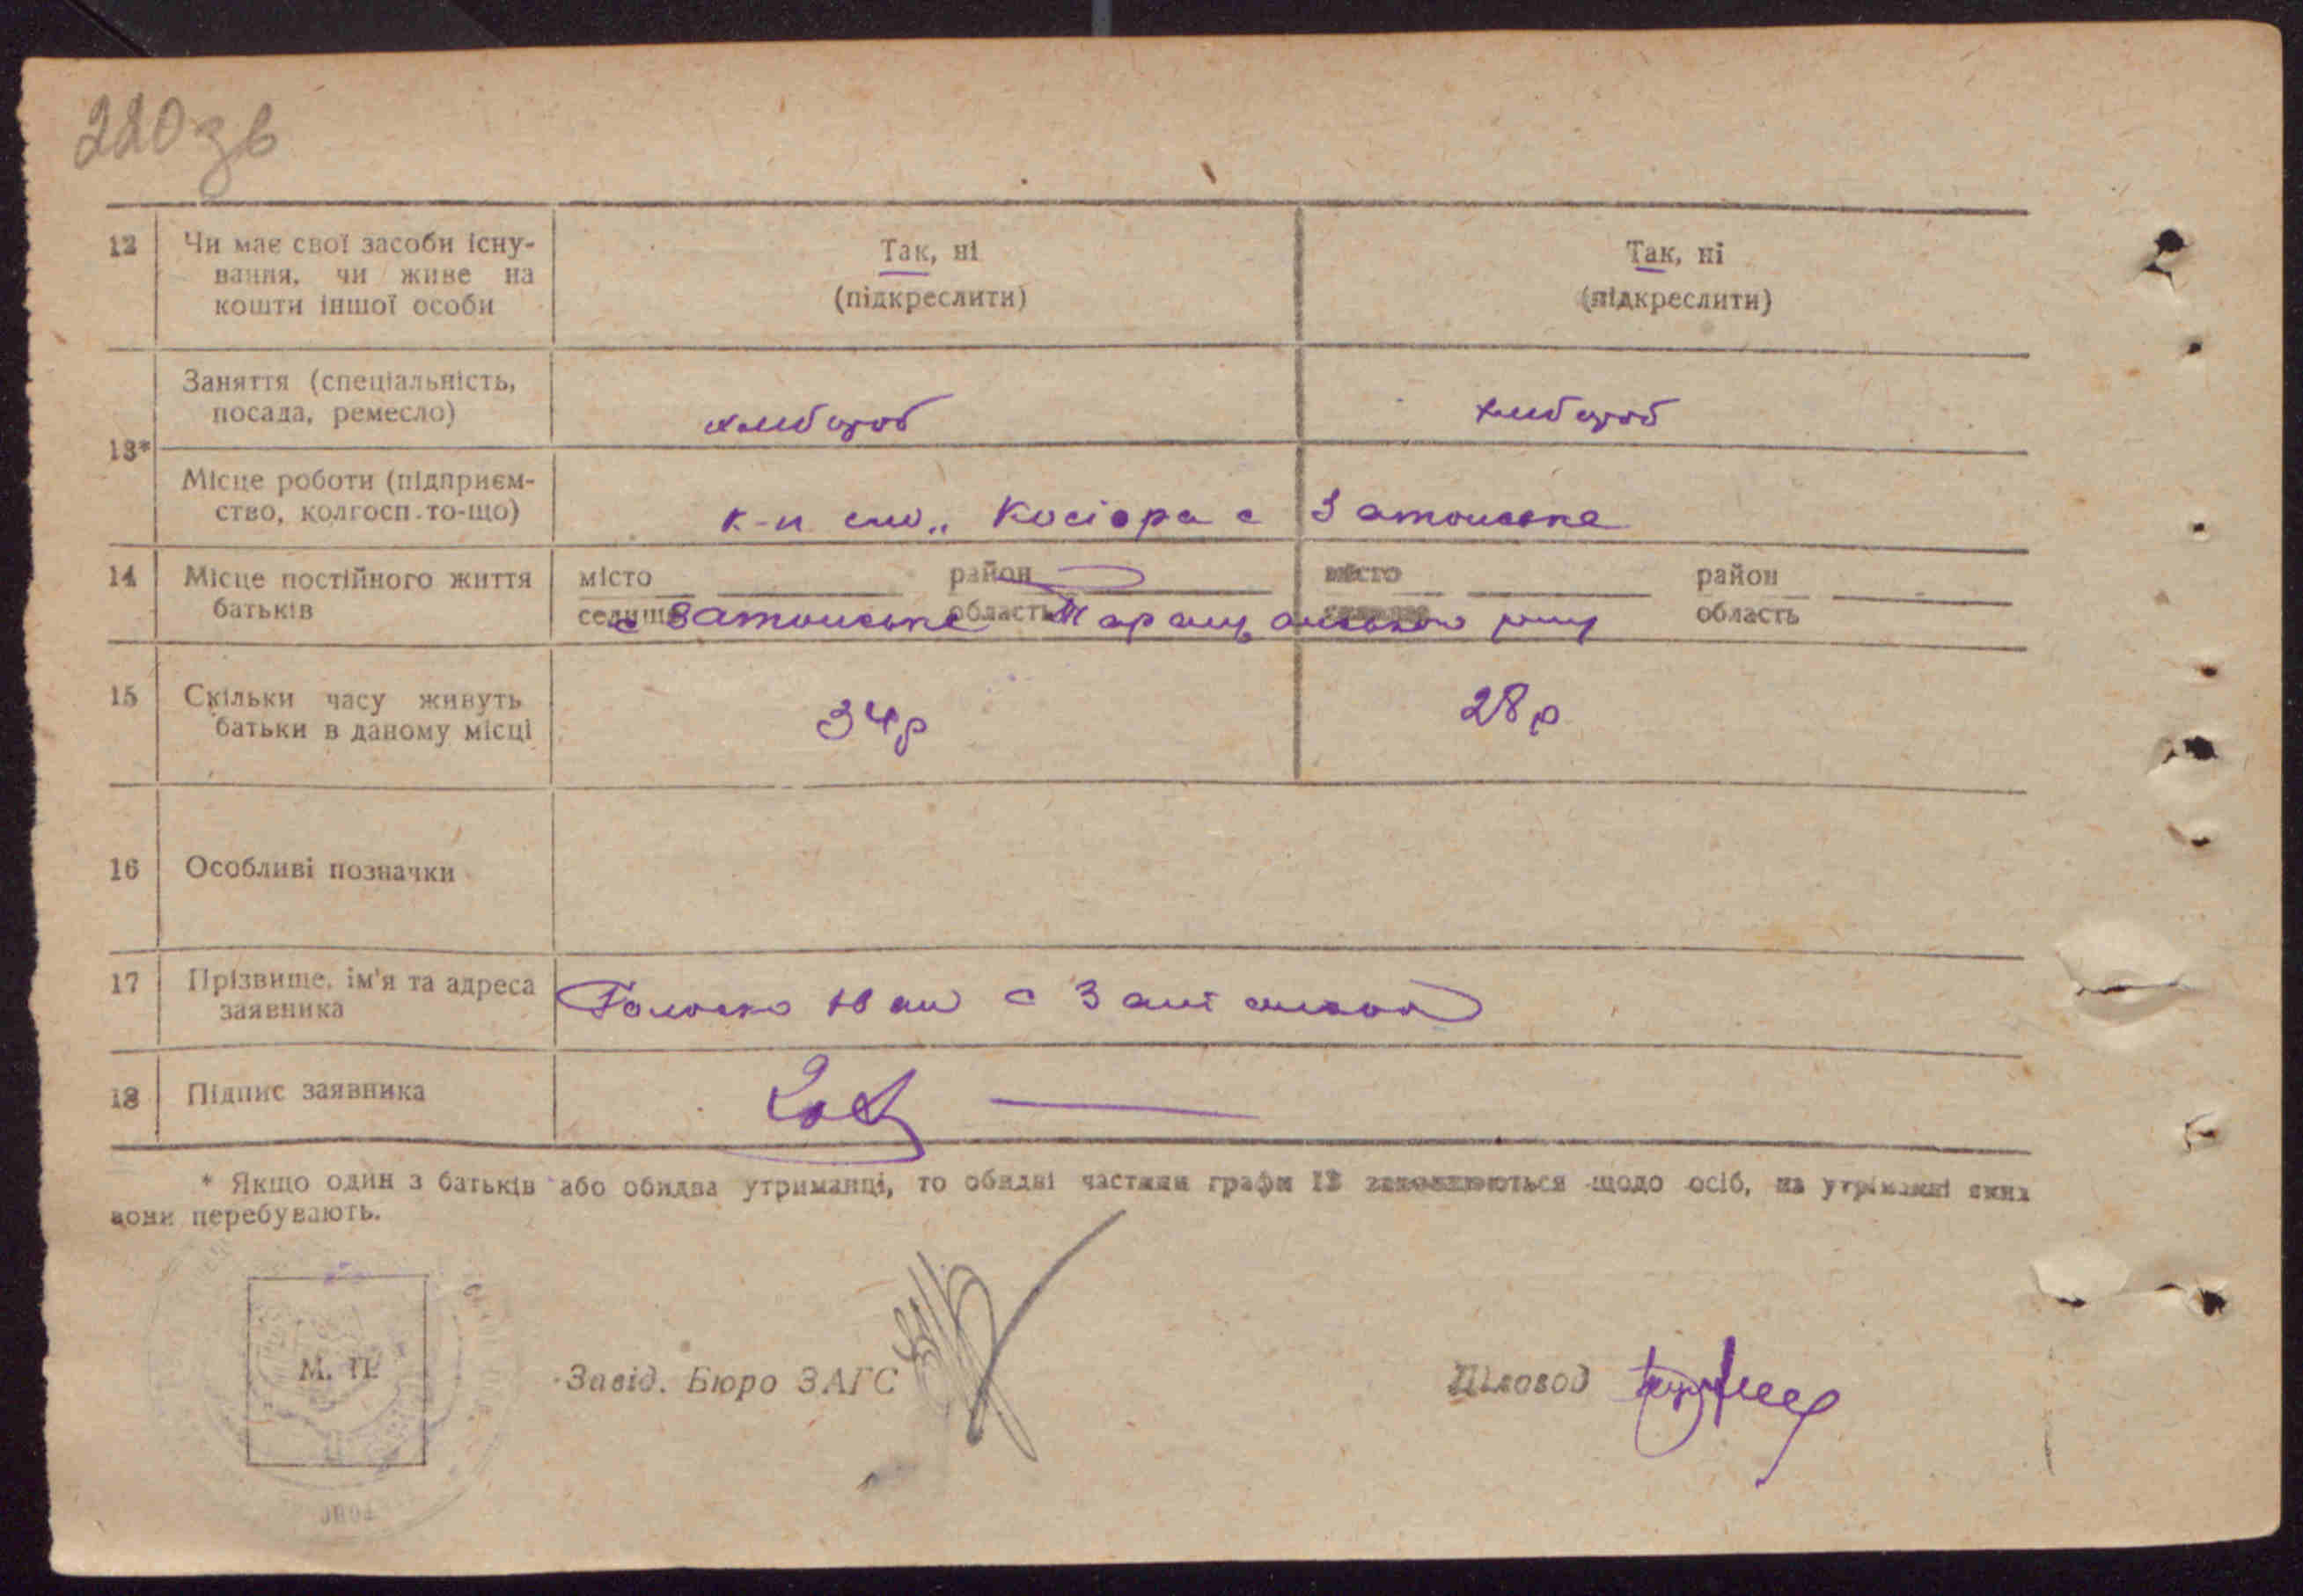 220 зв
12 Чи має свої засоби існу- Так, ні Так, ні
вання, чи живе на (підкреслити) (підкреслити)
кошти іншої особи
Заняття (спеціальність,
посада, ремесло) хлібороб хлібороб
13*
Місце роботи (підприєм-
ство, колгосп то-що) к-п ім. „Косіора с Затонське
14 Місце постійного життя місто район місто район
батьків селище область область
с Затонське Таращанського р-ну
15 Скільки часу живуть 34р 28р
батьки в даному місці
16 Особливі позначки
17 Прізвище, ім'я та адреса
заявника Іван с
18 Підпис заявника
* Якщо один з батьків або обидва утриманці, то обидві частини графи 13 заповнюються щодо осіб, на утриманні яких
вони перебувають.
М. П.
Завід. Бюро ЗАГС Діловод